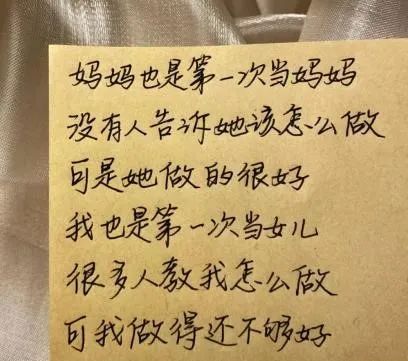 妈妈也是第一次当妈妈
没有人告诉她该怎么做
可是她做的很好
我也是第一次当女儿
很多人教我怎么做
可我做得还不够好